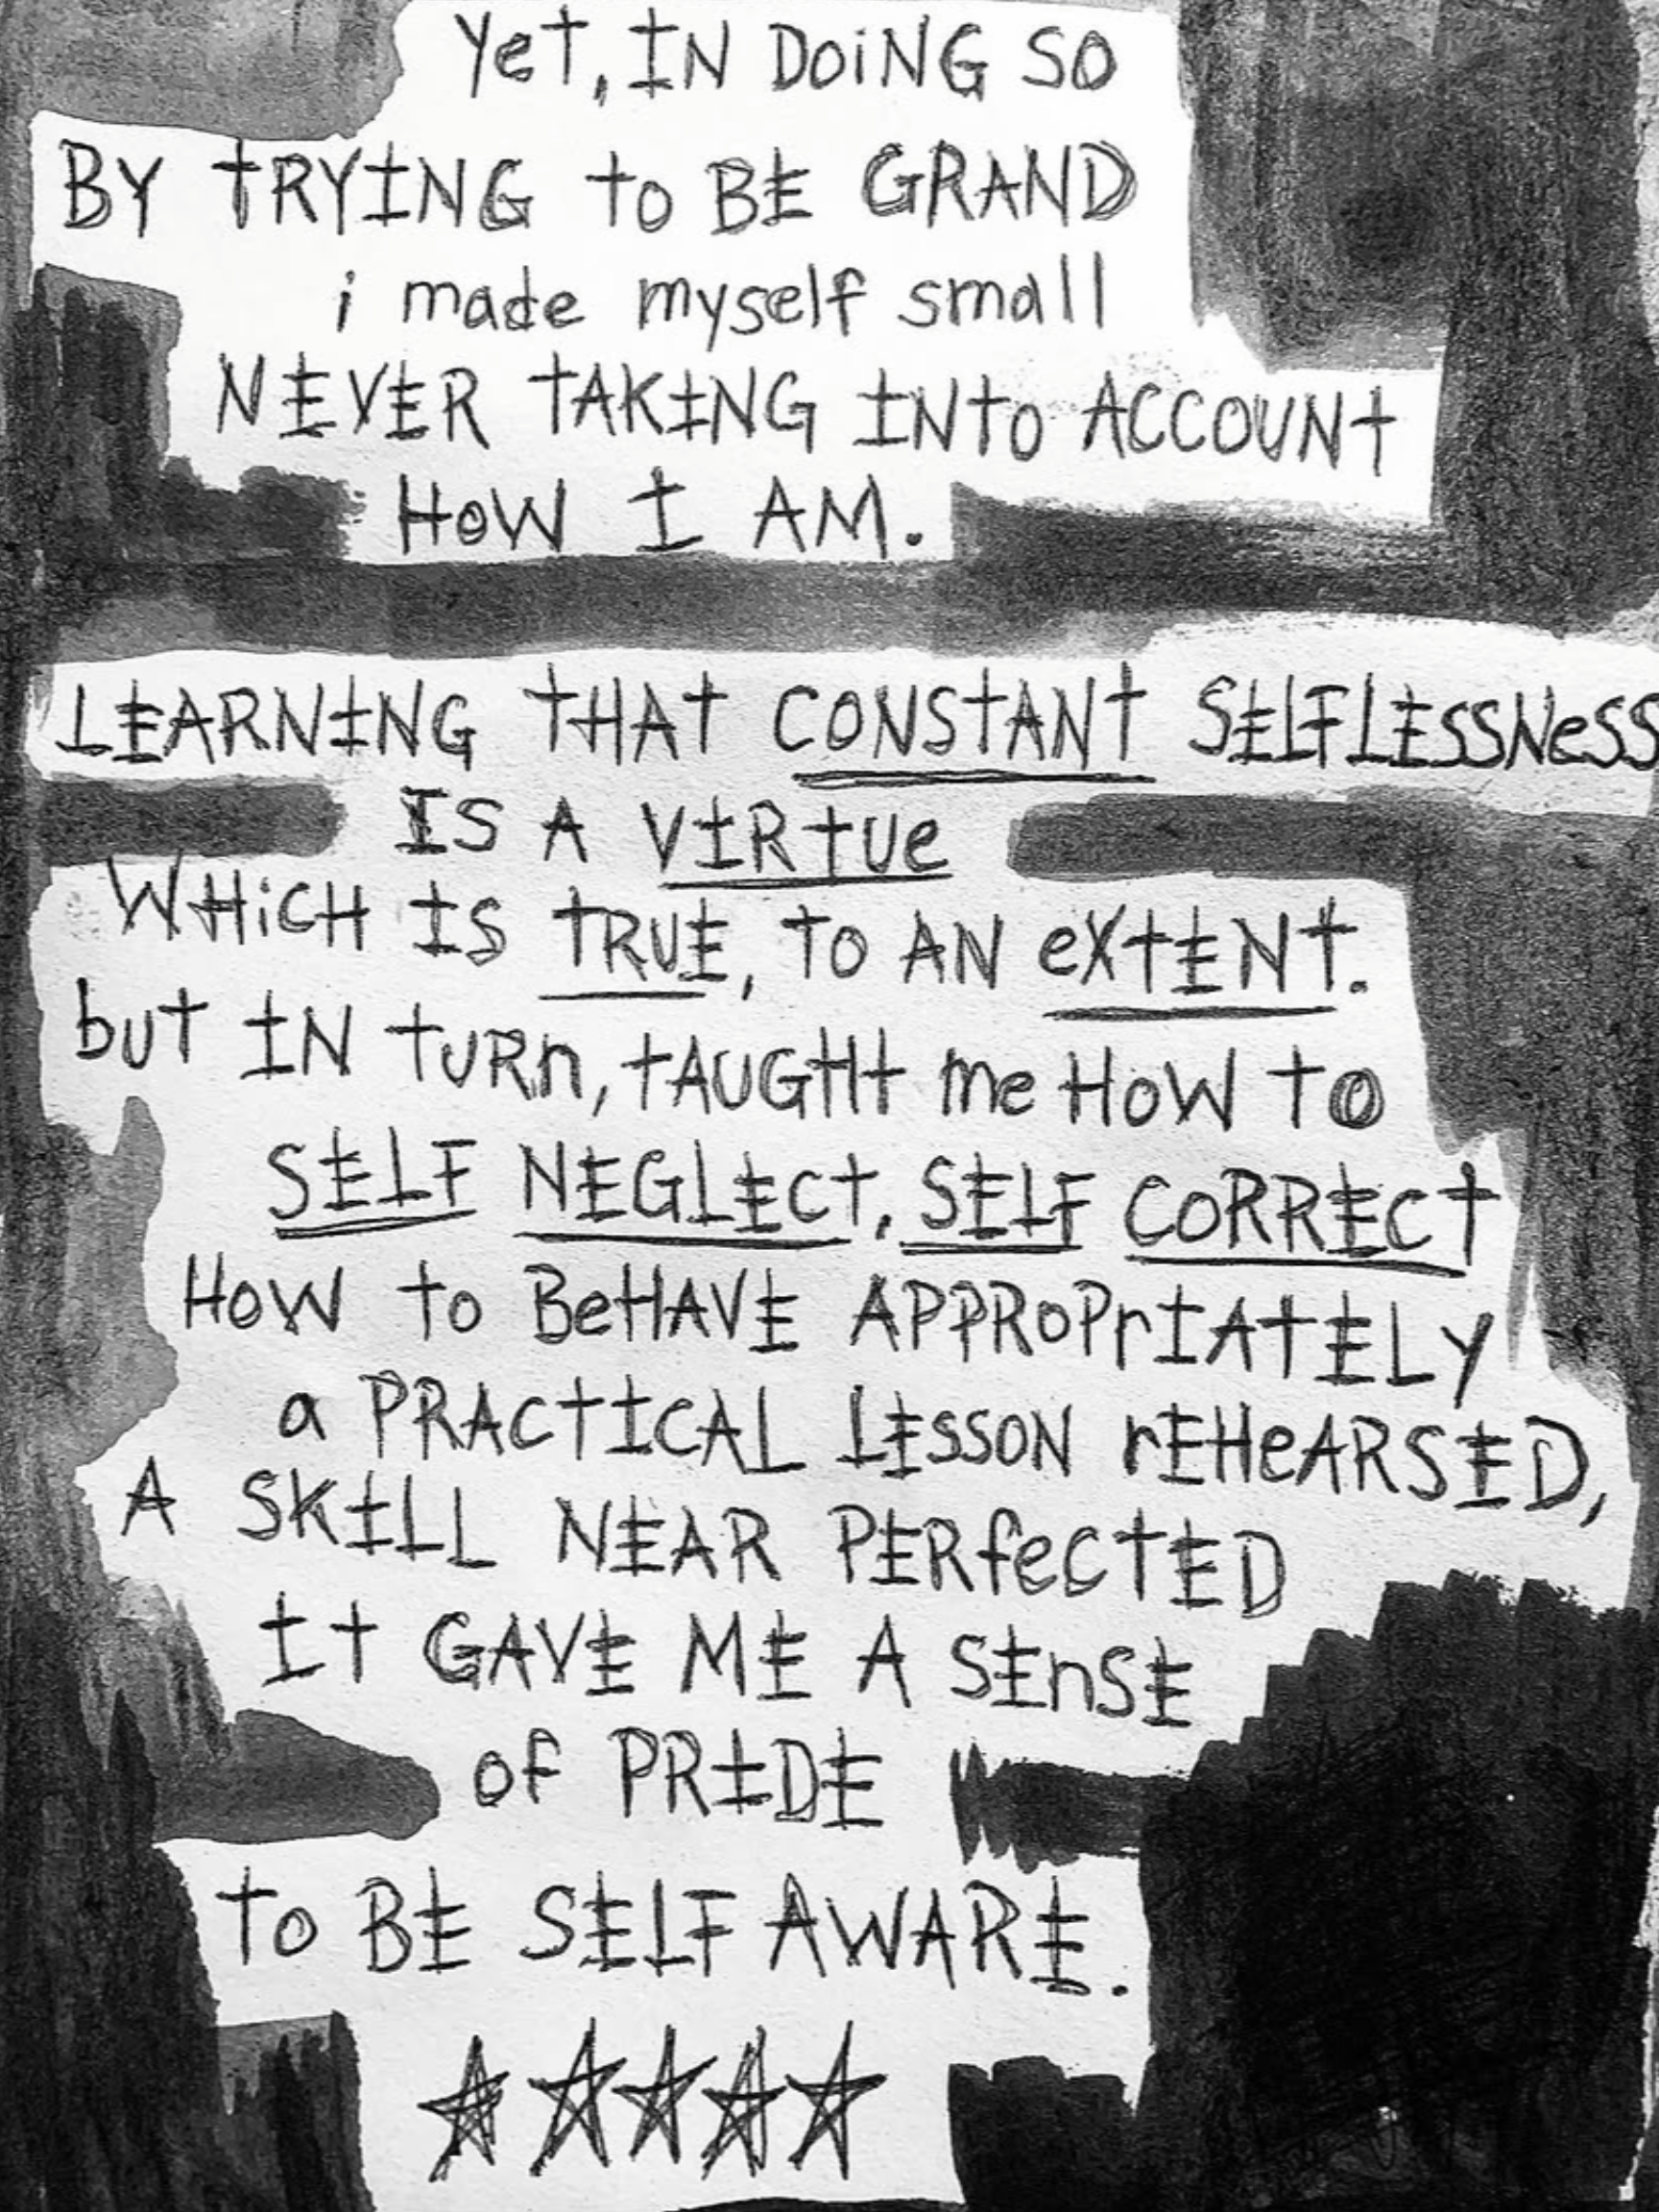 YeT, IN DOiNG SO
BY tRYING to BE GRAND
i made myself small
NEVER tAKING INto ACCOUNt
HoW I AM.
LEARNING tHAt CONStANt SELFLESSNeSS
IS A VIRtUe
WHiCH IS tRUE, TO AN eXtENt.
buT IN tURn, tAUGHt me HoW TO
SELF NEGLECt, SELF CoRRECt
HoW to BeHAVE APPRoPrIAtELy
a PRACtICAL LESSON rEHeARSED,
A SKILL NEAR PERfeCtED
It GAVE ME A SEnSE
of PRIDE
to BE SELF AWARE.